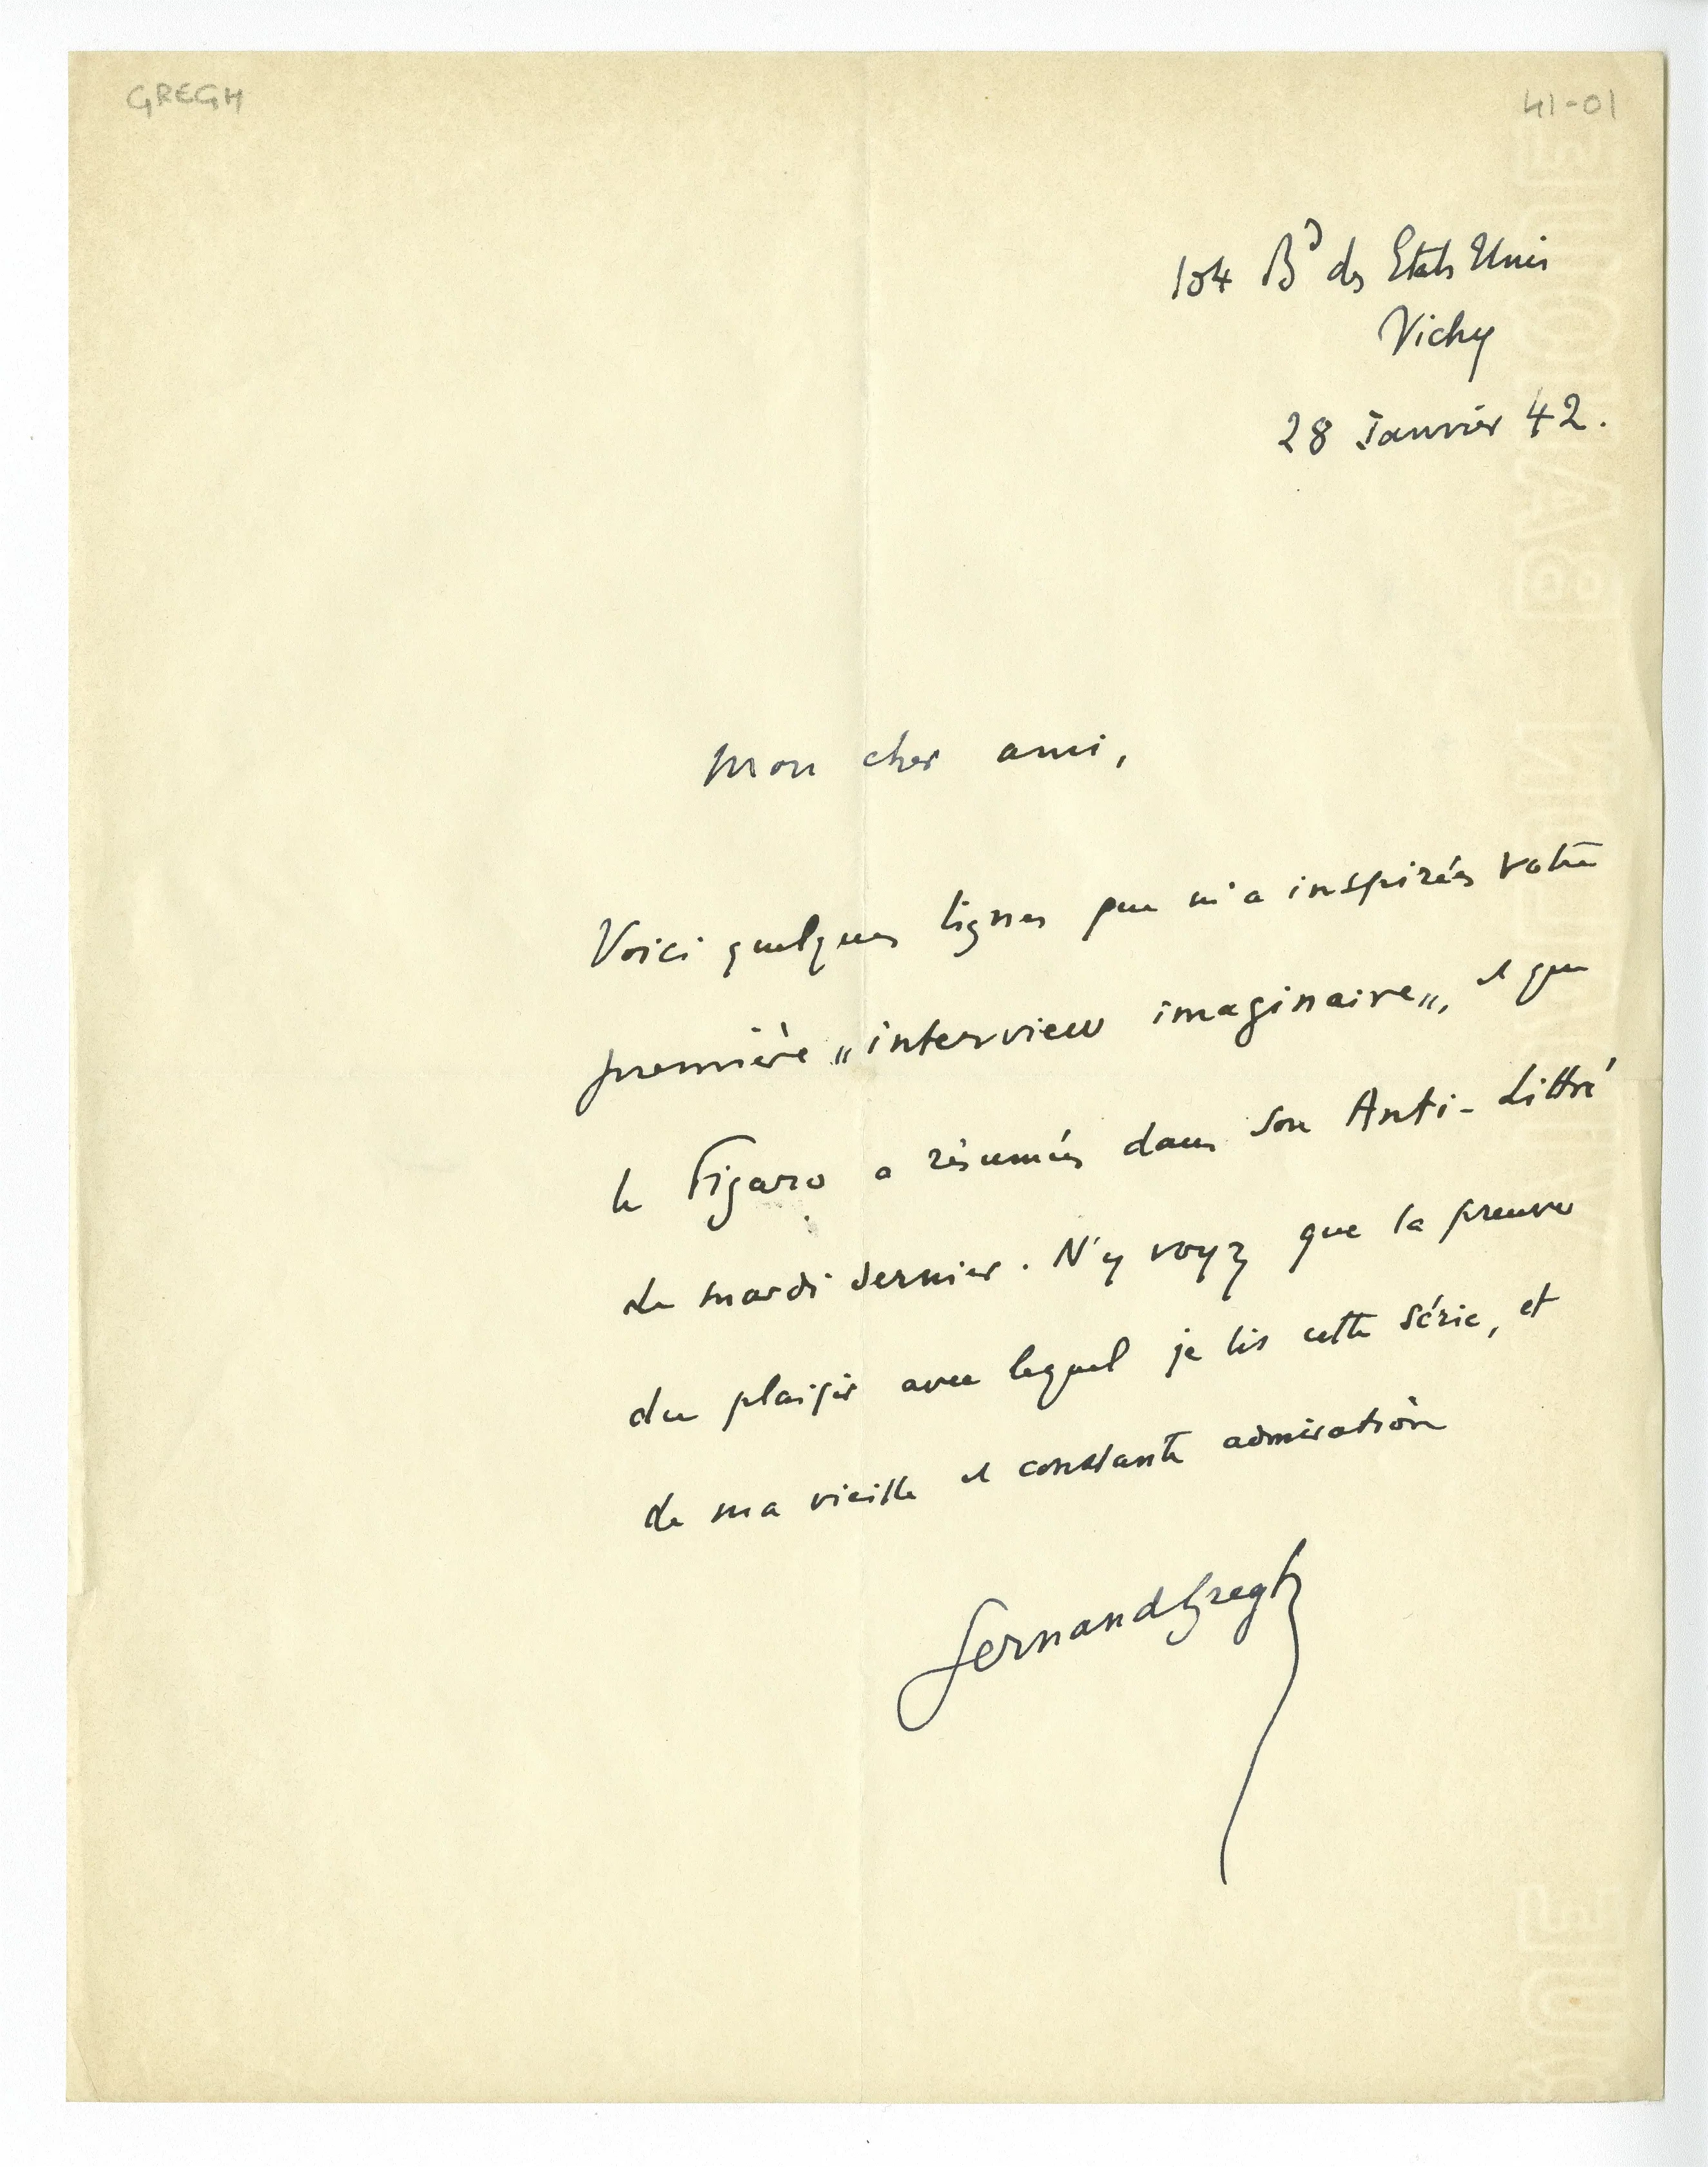 GREGH
41-01
104 Bd des Etats Unis
Vichy
28 Janvier 42.
Mon cher ami,
Voici quelques lignes que m'a inspirées votre
première „interview imaginaire„, et que
le Figaro a résumées dans son Anti-Littré
de mardi dernier. N'y voyez que la preuve
du plaisir avec lequel je lis cette série, et
de ma vieille et constante admiration
Fernand Gregh